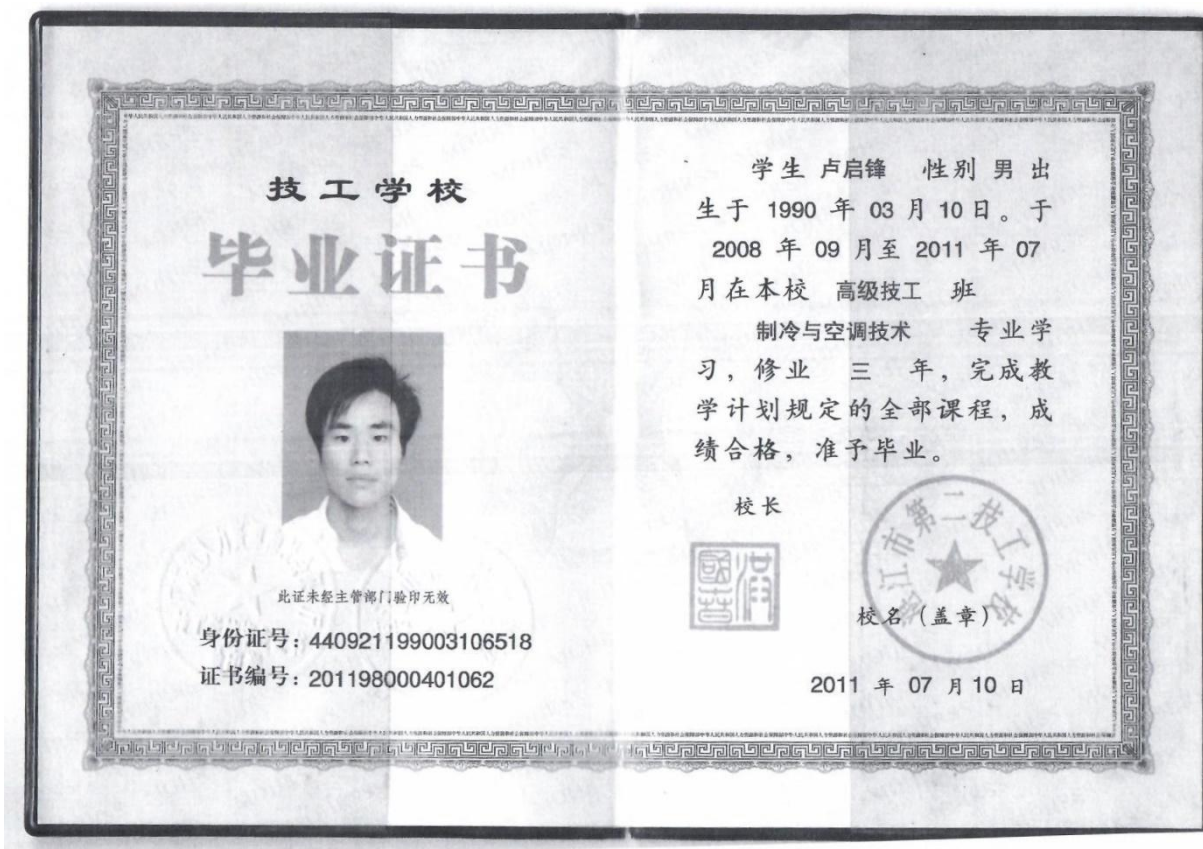 技工学校
毕业证书
此证未经主管部门验印无效
身份证号：440921199003106518
证书编号：201198000401062
学生 卢启锋 性别 男 出
生于 1990 年 03 月 10 日。于
2008 年 09 月至 2011 年 07
月在本校 高级技工 班
制冷与空调技术 专业学
习，修业 三 年，完成教
学计划规定的全部课程，成
绩合格，准予毕业。
校长
江市第二技工学校
校名（盖章）
2011 年 07 月 10 日